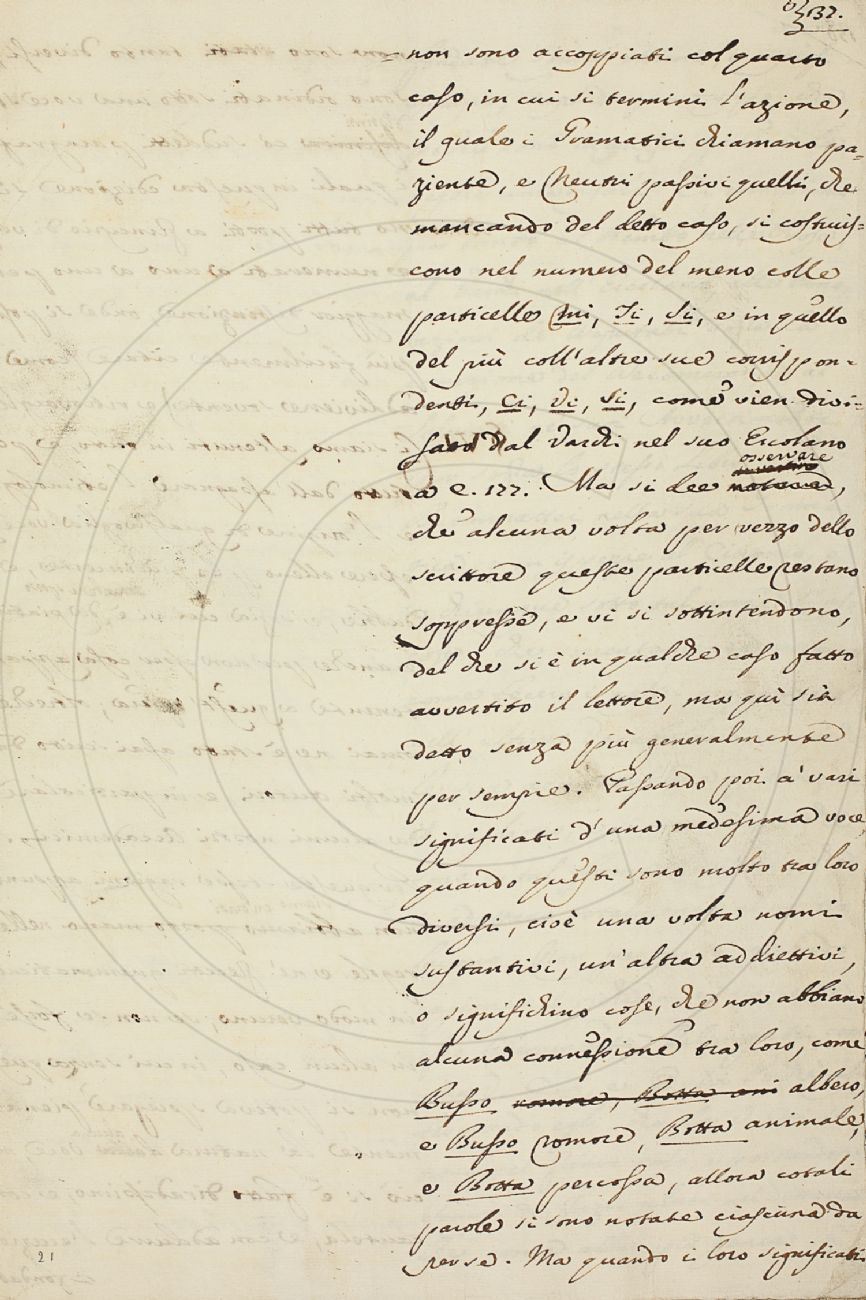 132.
non sono accoppiati col quarto
caso, in cui si termini l'azione,
il quale i Gramatici chiamano pa-
ziente, e Neutri passivi quelli, che
mancando del detto caso, si costruis-
cono nel numero del meno colle
particelle Mi, Ti, Si, e in quello
del più coll'altre sue corrispon-
denti, Ci, Vi, Si, come vien divi-
sato dal Varchi nel suo Ercolano
osservare
a c. 177. Ma si dee notare,
che alcuna volta per vezzo dello
scrittore queste particelle restano
soppresse, e vi si sottintendono,
del che si è in qualche caso fatto
avvertito il lettore, ma quì sia
detto senza più generalmente
per sempre. Passando poi a' vari
significati d'una medesima voce,
quando questi sono molto tra loro
diversi, cioè una volta nomi
sustantivi, un'altra addiettivi,
o significhino cose, che non abbiano
alcuna connessione tra loro, come
Busso romore, Botta ani albero,
e Busso romore, Botta animale,
e Botta percossa, allora cotali
parole si sono notate ciascuna da
per se. Ma quando i loro significati
21